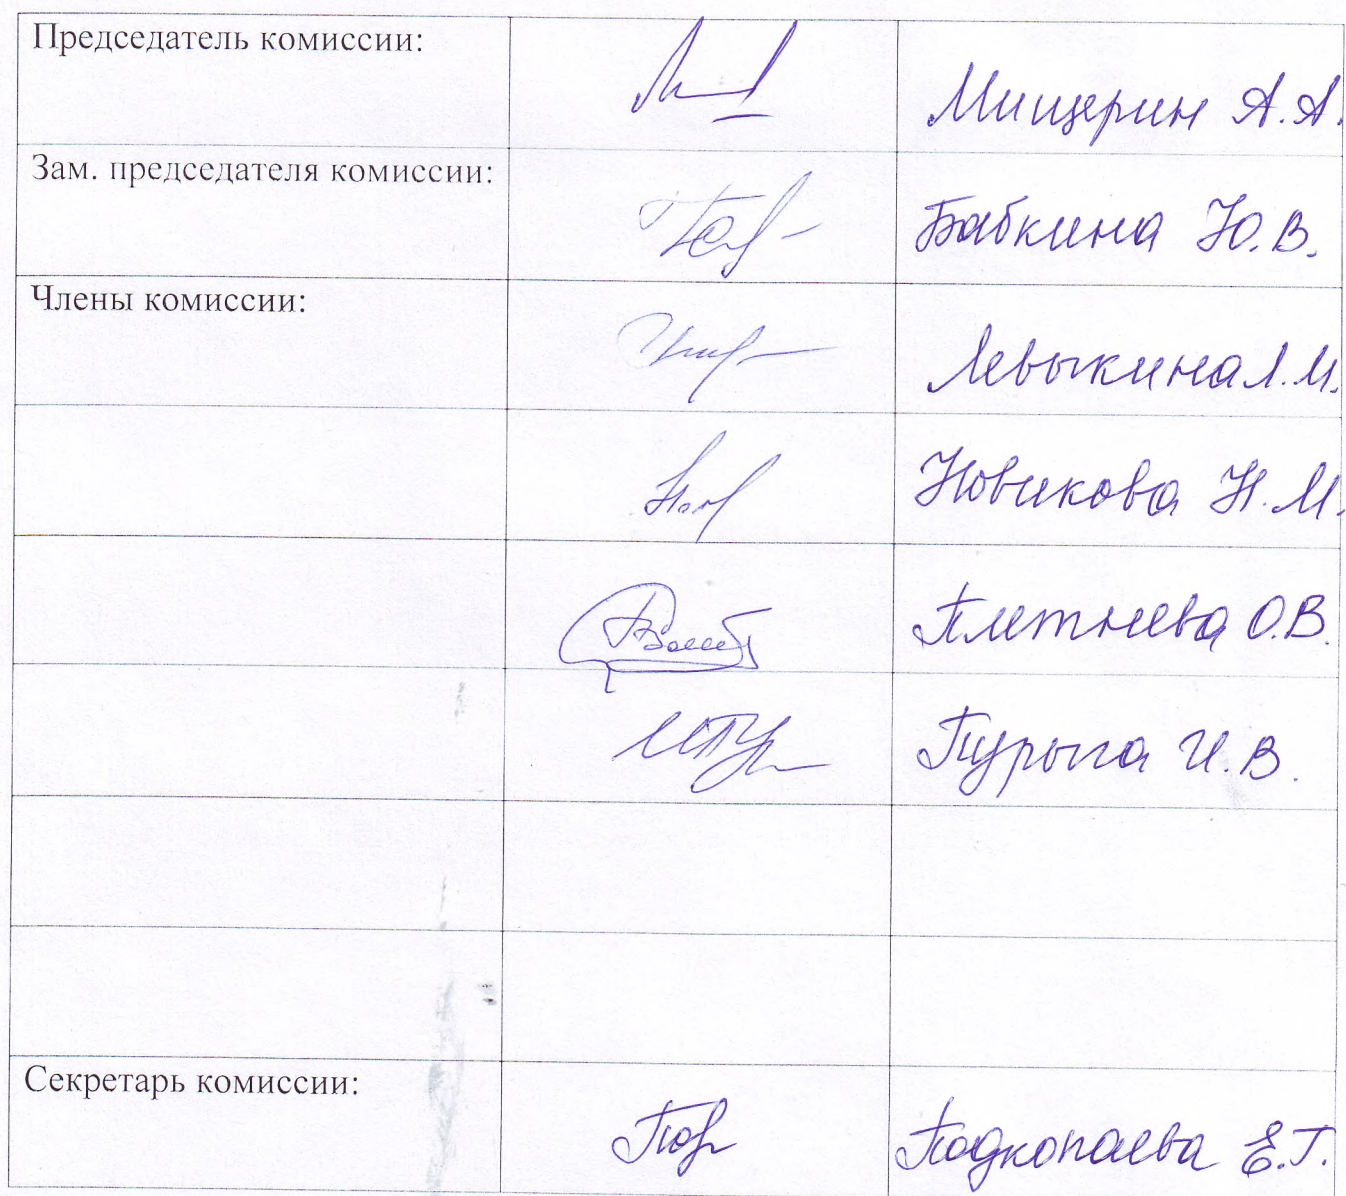 Председатель комиссии: Мищерин А.А.
Зам. председателя комиссии: Бабкина Ю.В.
Члены комиссии: Левыкина Л.И.
Новикова Н.М.
Плетнева О.В.
Пурыга И.В.
Секретарь комиссии: Подкопаева Е.Г.